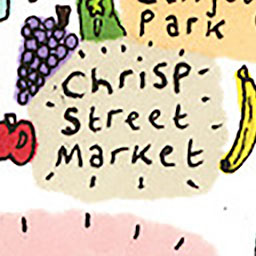 Park
Chrisp
Street
Market